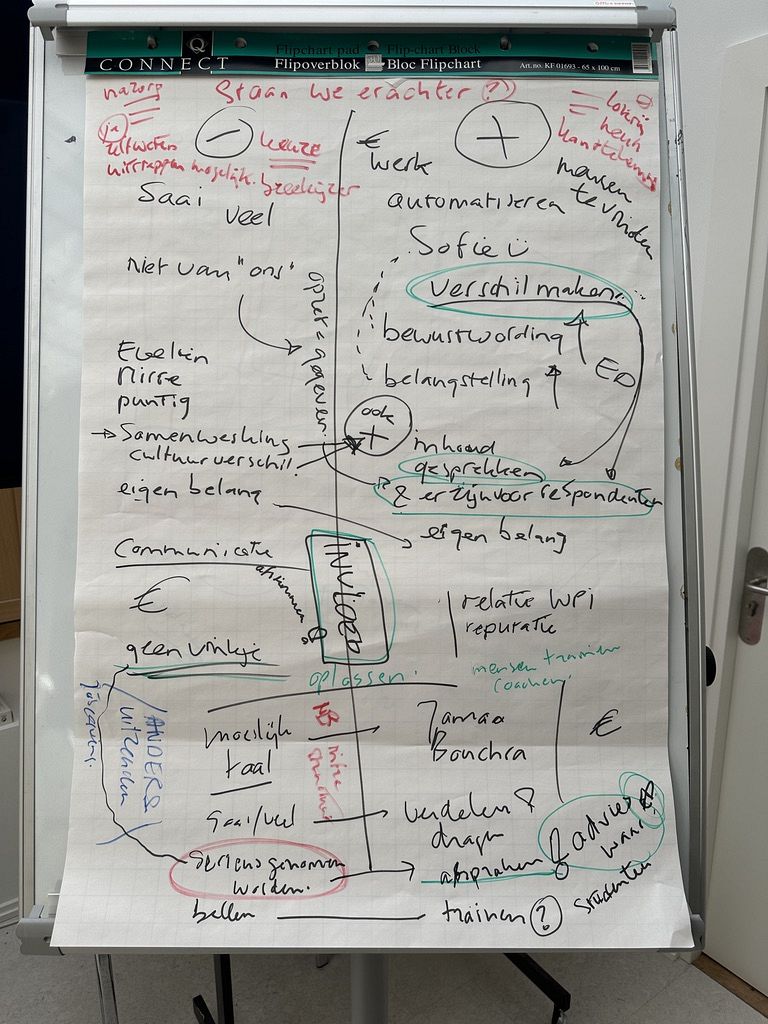 Q
CONNECT
Flipchart pad Flip-chart Block
Flipoverblok Bloc Flipchart
Art.no. KF 01693 - 65 x 100 cm
nazorg
Staan we erachter ?
ja
−
keuze
€
werk
+
mensen
te vinden
Saai
veel
automatiseren
Sofie
Niet van "ons"
opzet = gegeven
verschil maken
bewustwording
belangstelling
EO
Evelien
Mirre
puntig
ook
+
→ Samenwerking
cultuurverschil
inhoud
gesprekken
& er zijn voor respondenten
eigen belang
eigen belang
Communicatie
INVLOED
€
relatie WPI
reputatie
geen vinkje
oplossen.
mensen trainen
coachen
ANDERS
uitzenden
moeilijk
taal
€
Saai/veel
verdelen &
dragen
& advies
waar
serieus genomen
worden.
afspraken
studenten
bellen
trainen ?